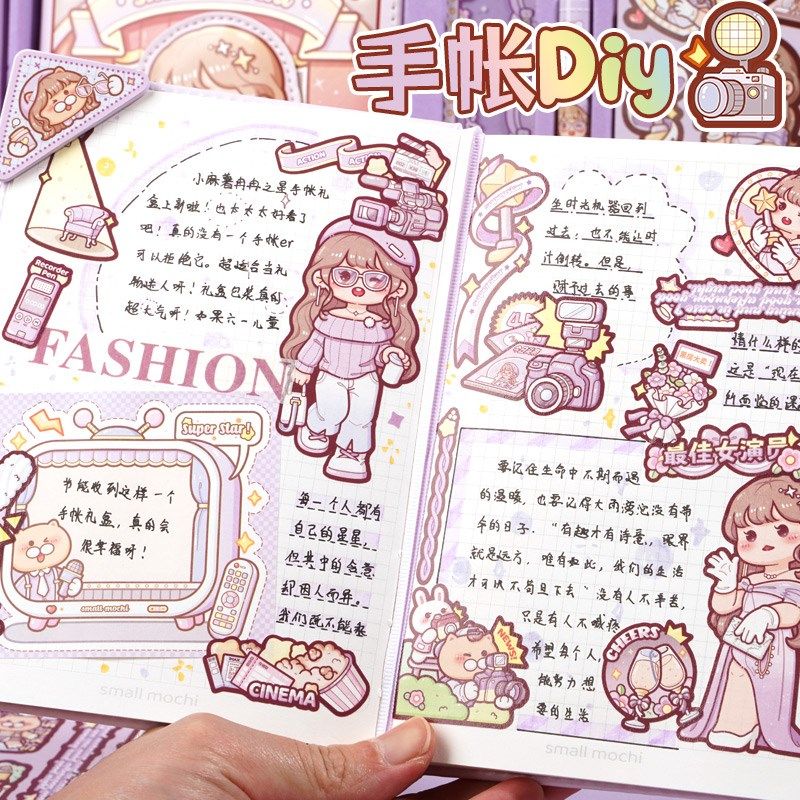 手帐Diy
ACTION
小麻薯冉冉之星手帐礼
盒上新啦！也太太太好看了
吧！真的没有一个手帐er
可以拒绝它。超适合当礼
物送人呀！礼盒包装真的
超大气呀！如果六一儿童
Recorder
Pen
FASHION
Super Star!
节能收到这样一个
手帐礼盒，真的会
很幸福呀！
small mochi
每一个人都有
自己的星星，
但其中的含意
却因人而异。
我们既不能被
CINEMA
small mochi
坐时光机器回到
过去；也不能让时
计倒转。但是，
对于过去的事
情什么样的
这是“现在
所面临的课
最佳女演员
要记住生命中不期而遇
的温暖，也要记得大雨滂沱没有带
伞的日子。“有趣才有诗意，眼界
就是远方，唯有如此，我们的生活
才可以不苟且下去”没有人不辛苦，
只是有人不喊疼
希望每个人，
都努力想
要的生活
NEWS!
CHEERS
small mochi